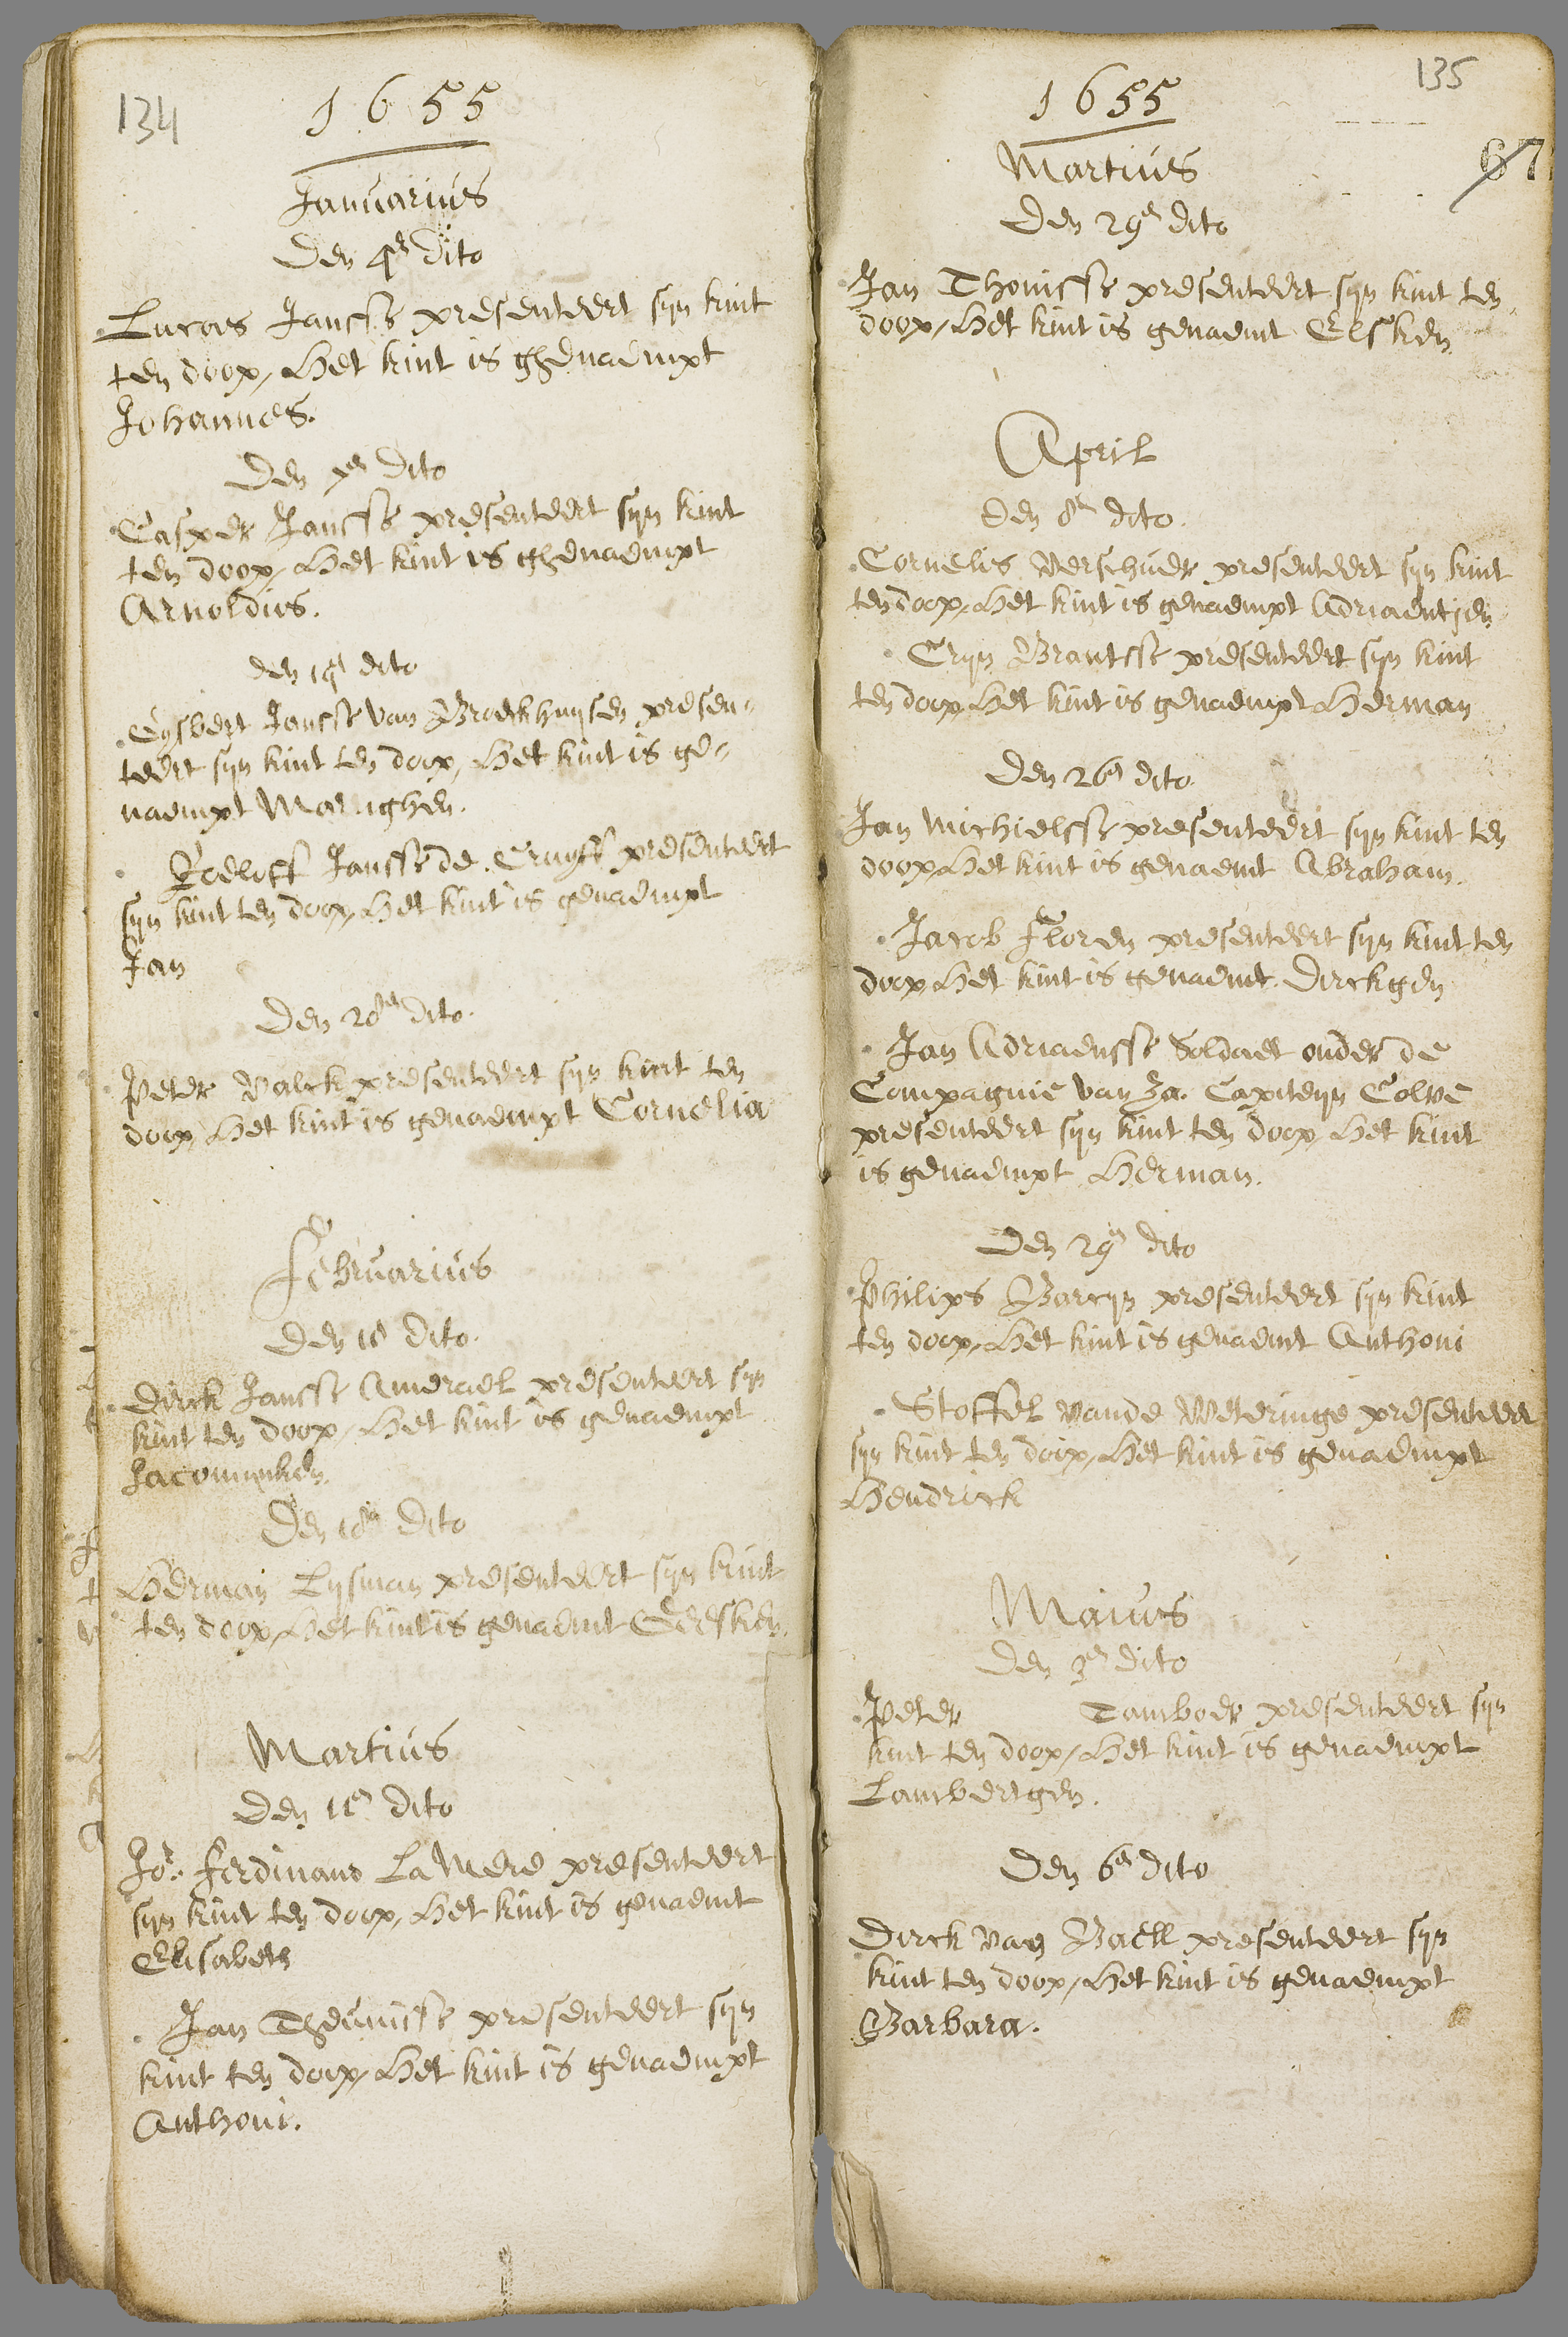 134
1655
Januarius
Den 4en dito
Lucas Jansse presenteert syn kint
ten doop, Het kint is ghenaempt
Johannes.
Den en dito
Casper Jansse presenteert syn kint
ten doop, Het kint is ghenaempt
Arnoldus.
den dito
Gysbert Jansse van Broeckhuysen presen-
teert syn kint ten doop, Het kint is ge-
naempt Marrighen.
Roeloff Jansse de Cruyff presenteert
syn kint ten doop, Het kint is genaempt
Jan
Den 28en dito.
Peter Valck presenteert syn kint ten
doop, Het kint is genaempt Cornelia
Februarius
Den dito.
Dirck Jansse Amerael presenteert syn
kint ten doop, Het kint is genaempt
Jacomynken.
Den 18en dito
Herman Lysman presenteert syn kint
ten doop, Het kint is genaemt Geesken.
Martius
Den 11en dito
Jor. Ferdinand La Mere presenteert
syn kint ten doop, Het kint is genaemt
Elisabeth
Jan Theunisse presenteert syn
kint ten doop, Het kint is genaempt
Anthoni.
135
67
1655
Martius
Den 29en dito
Jan Thonisse presenteert syn kint ten
doop, Het kint is genaemt Elsken
April
Den 8en dito.
Cornelis Verschuer presenteert syn kint
ten doop, Het kint is genaempt Adriaentjen
Cryn Brantsse presenteert syn kint
ten doop Het kint is genaempt Herman
Den 26en dito.
Jan Michielsse presenteert syn kint ten
doop, Het kint is genaemt Abraham.
Jacob Floren presenteert syn kint ten
doop, Het kint is genaemt. Dirckgen
Jan Adriaensse Soldaet onder de
Compagnie van Capiteyn Colve
presenteert syn kint ten doop, Het kint
is genaempt Herman.
Den 29en dito
Philips Barcyn presenteert syn kint
ten doop, Het kint is genaemt Anthoni
Stoffel vande Weteringe presenteert
syn kint ten doop, Het kint is genaempt
Hendrick
Maius
Den 3en dito
Peter Tamboer presenteert syn
kint ten doop, Het kint is genaempt
Lambertgen.
Den 6en dito
Dirck van Baell presenteert syn
kint ten doop, Het kint is genaempt
Barbara.